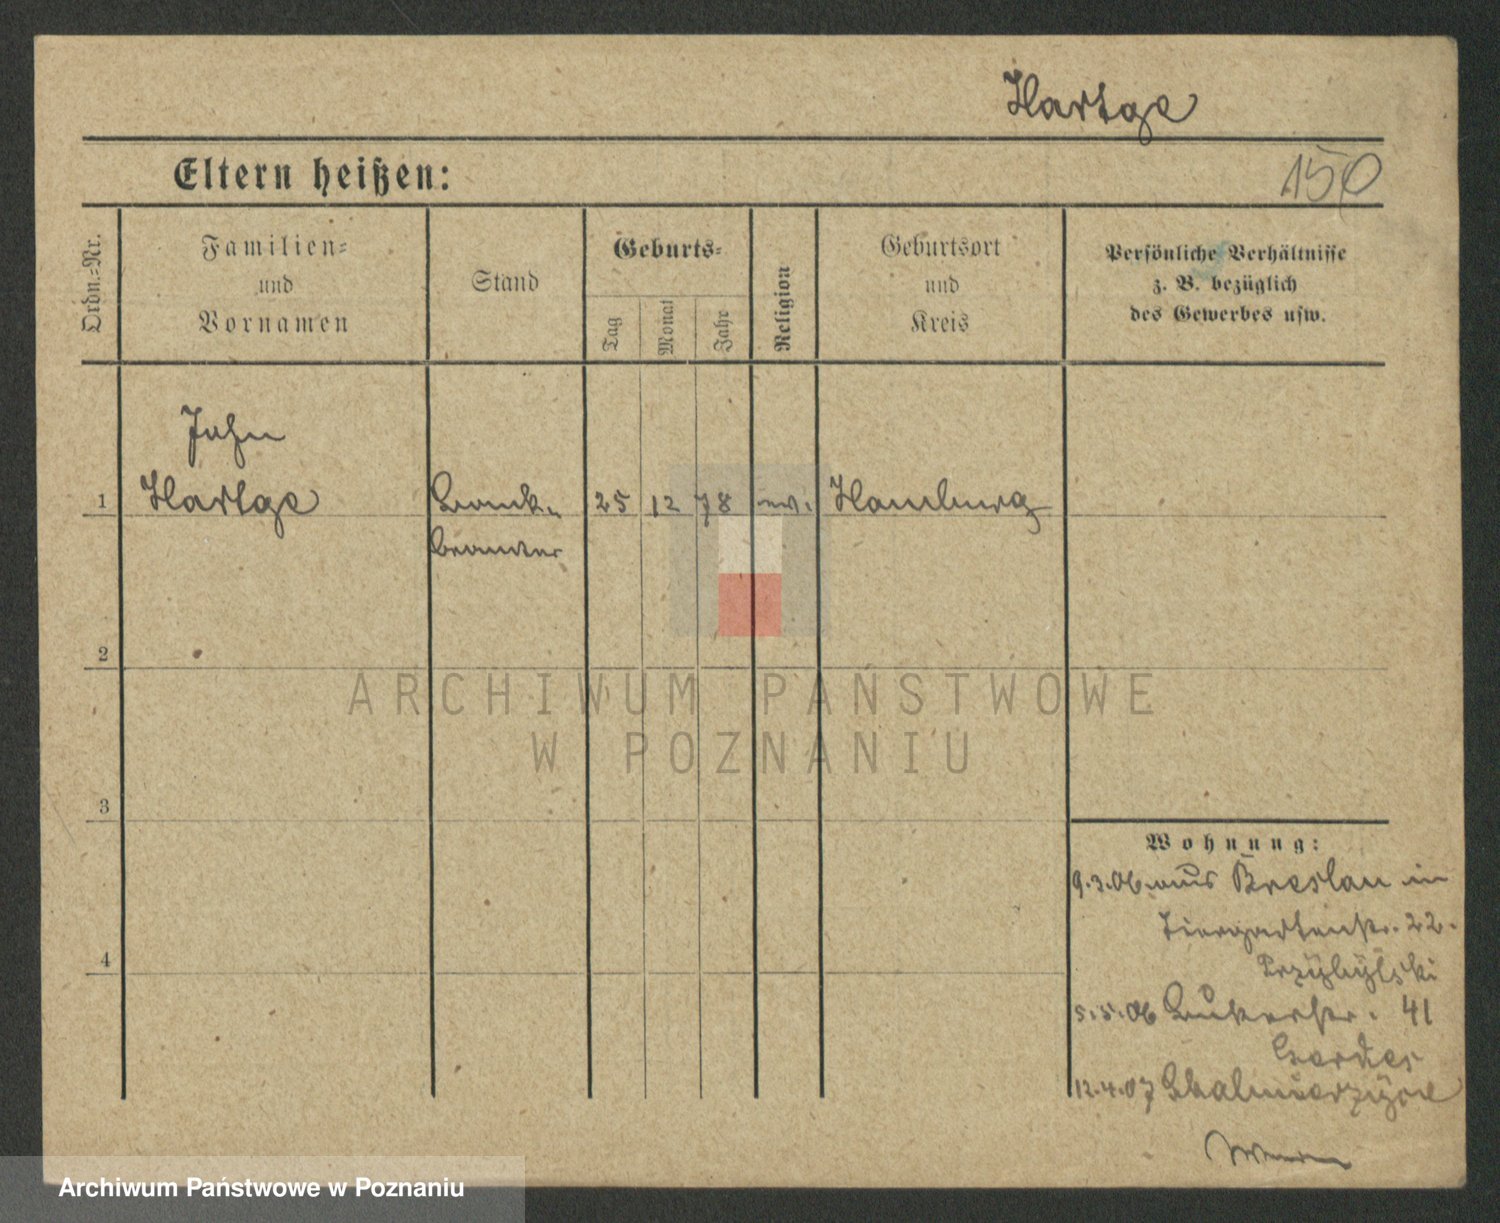 Hartge
Eltern heißen:
150
Ordn.-Nr.
Familien-
und
Vornamen
Stand
Geburts-
Tag
Monat
Jahr
Religion
Geburtsort
und
Kreis
Persönliche Verhältnisse
z. B. bezüglich
des Gewerbes usw.
John
1 Hartge Bank- 25 12 78 ev. Hamburg
beamter
2
3
4
Wohnung:
9.3.06 aus Breslau in
Tiergartenstr. 22.
Przybylski
5.5.06 41
Gerdes
12.4.07
ARCHIWUM PAŃSTWOWE
W POZNANIU
Archiwum Państwowe w Poznaniu